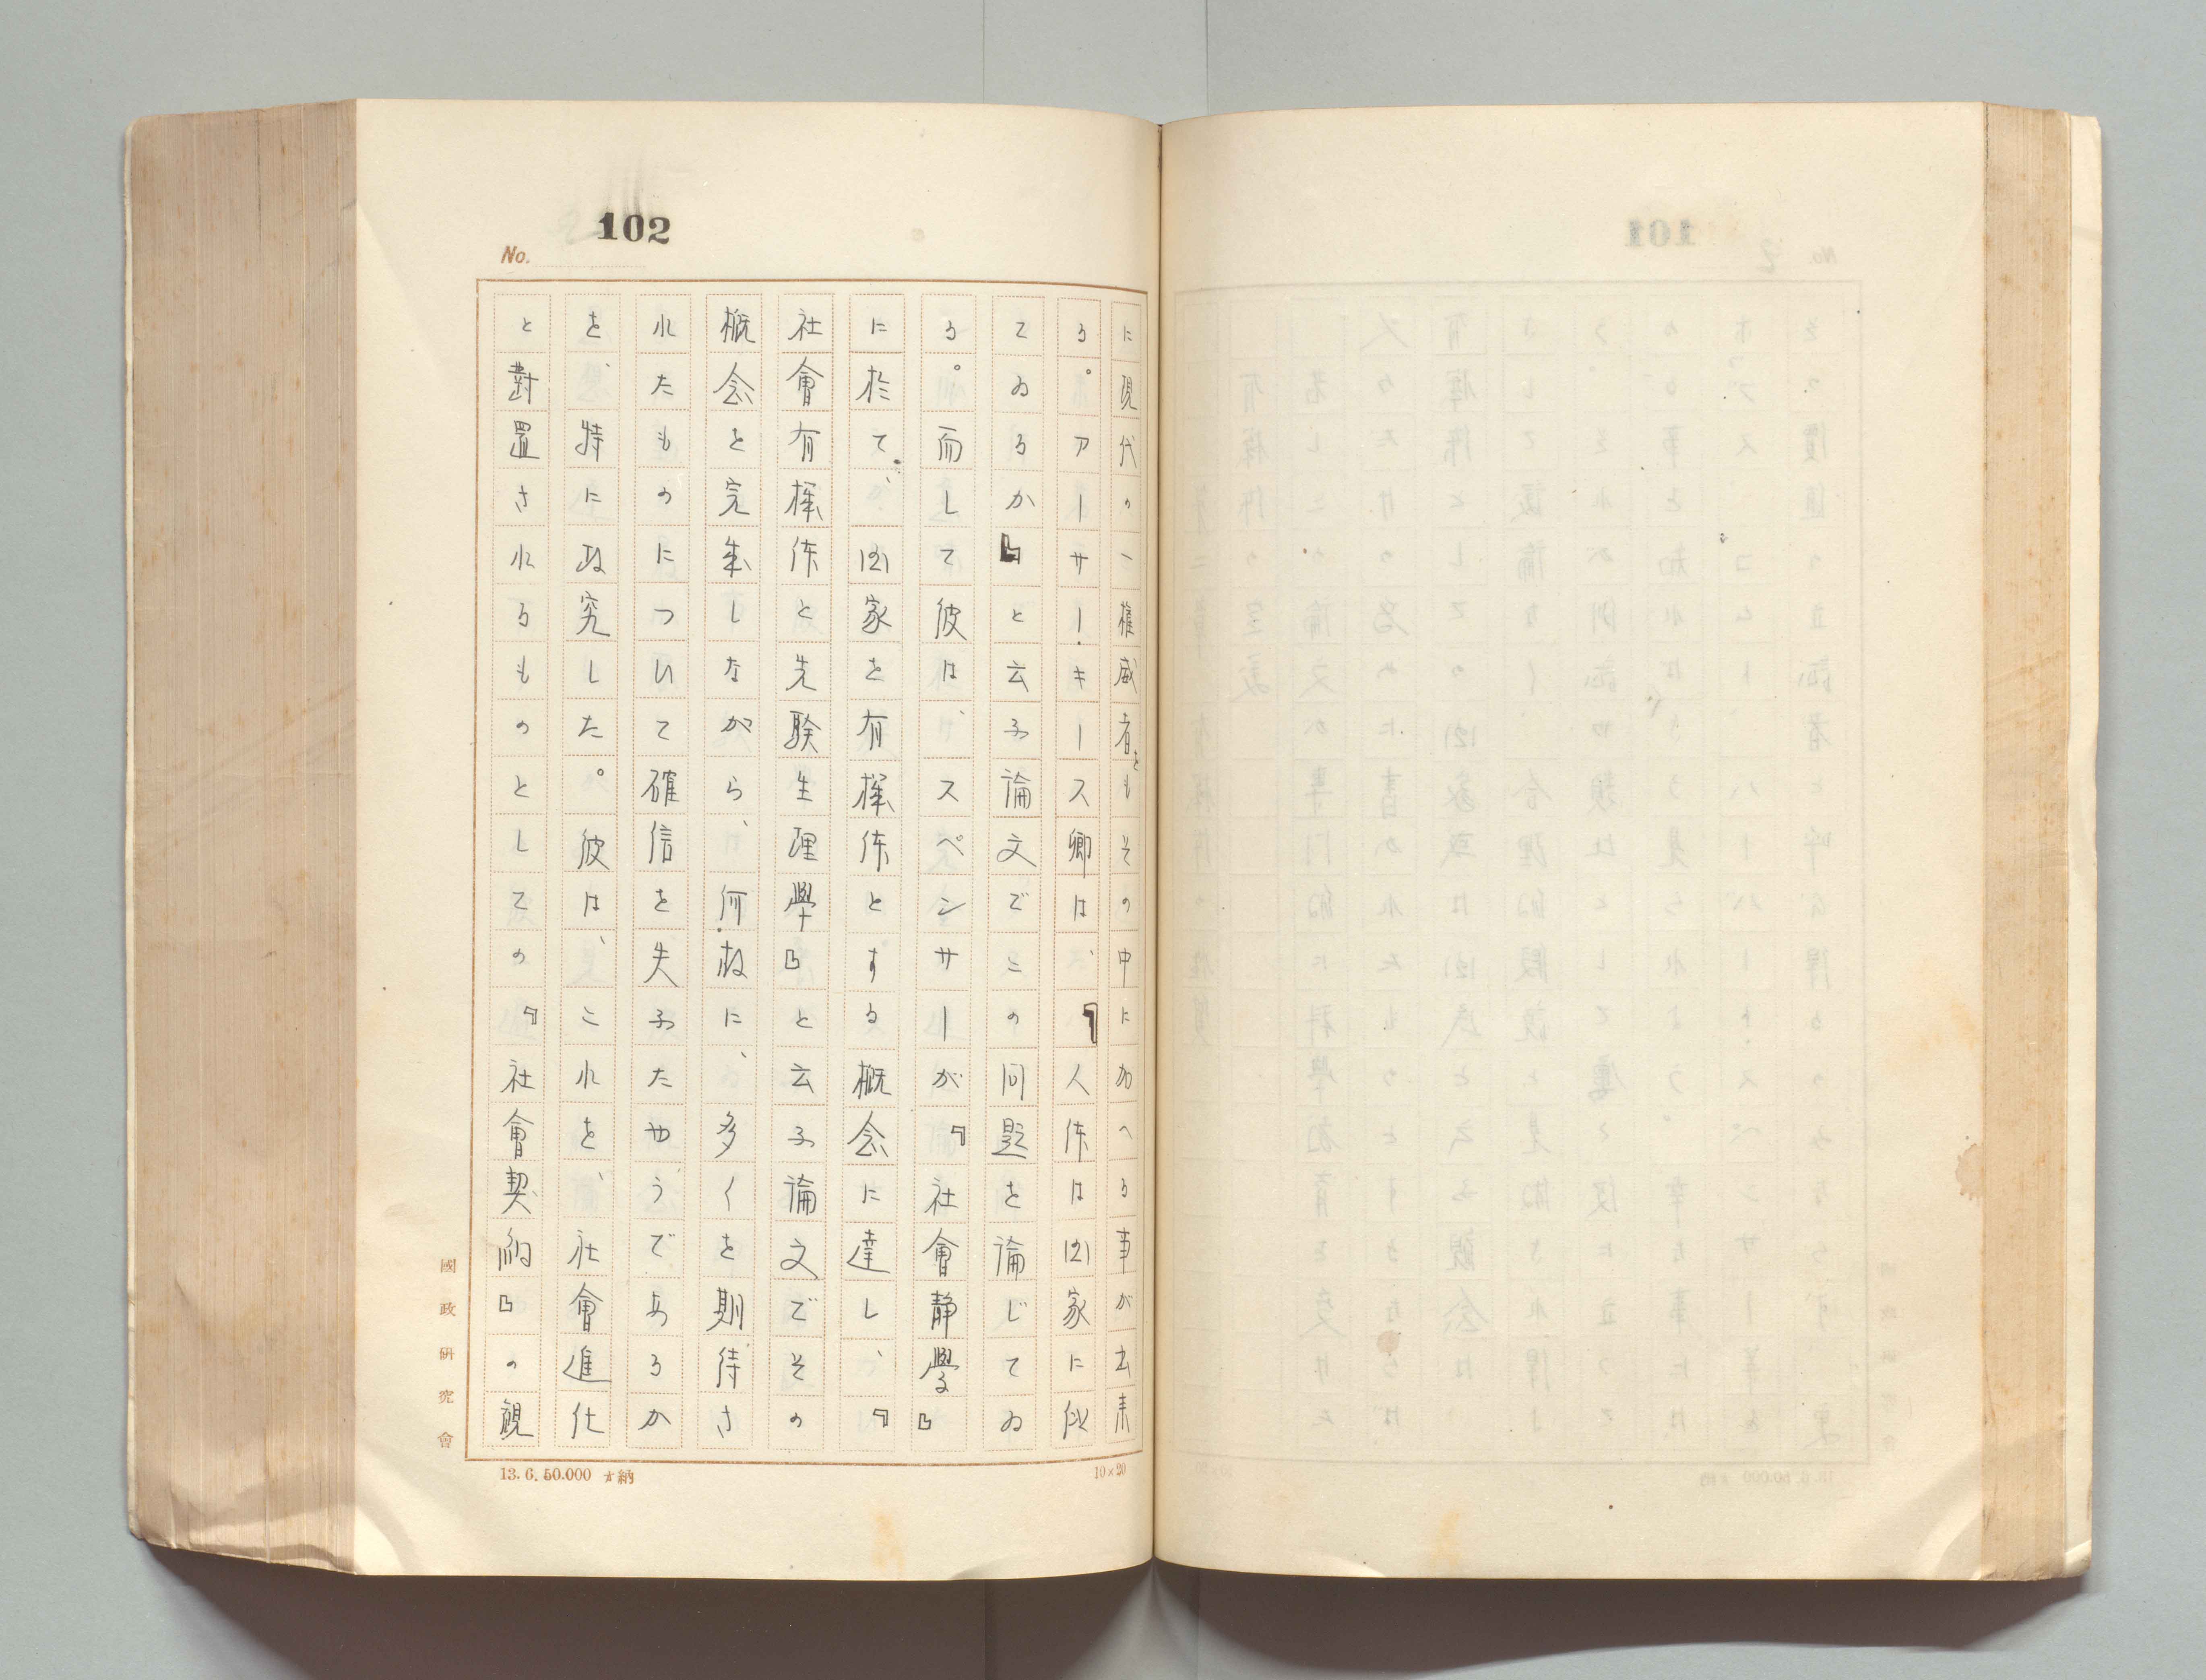 102
No.
に現代の一権威者をもその中に加へる事が出来
る。アーサー・キース卿は、『人体は国家に似
てゐるか』と云ふ論文でこの問題を論じてゐ
る。而して彼は、スペンサーが『社會静學』
に於て、国家を有機体とする概念に達し、『
社會有機体と先験生理學』と云ふ論文でその
概念を完成しながら、何故に、多くを期待さ
れたものについて確信を失ふたやうであるか
を、特に攷究した。彼は、これを、社會進化
と對置されるものとしての『社會契約』の観
國政研究會
13. 6. 50.000 納
10×20